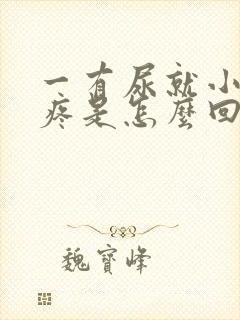 一有尿就小
疼是怎麼回
魏寶峰